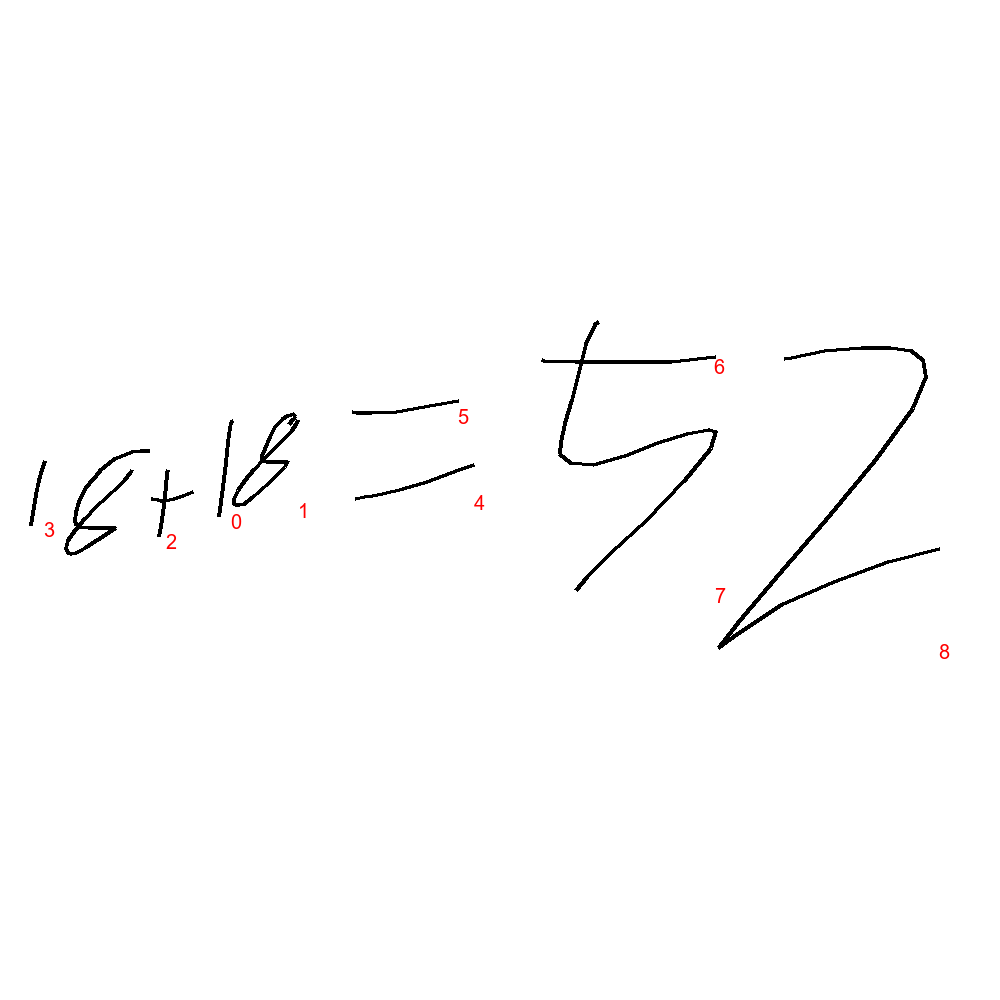 18+18=52
3 2 0 1 5 4 6 7 8